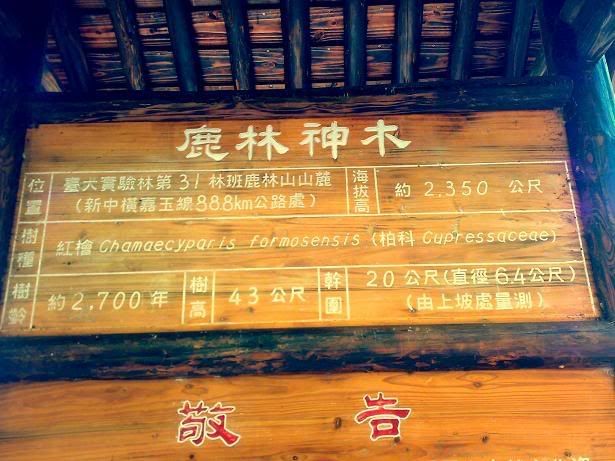 鹿林神木
位置 臺大實驗林第31林班鹿林山山麓 海拔高 約2,350公尺
(新中橫嘉玉線88.8km公路處)
樹種 紅檜 Chamaecyparis formosensis (柏科 Cupressaceae)
樹齡 約2,700年 樹高 43公尺 幹圍 20公尺(直徑6.4公尺)
(由上坡處量測)
敬告